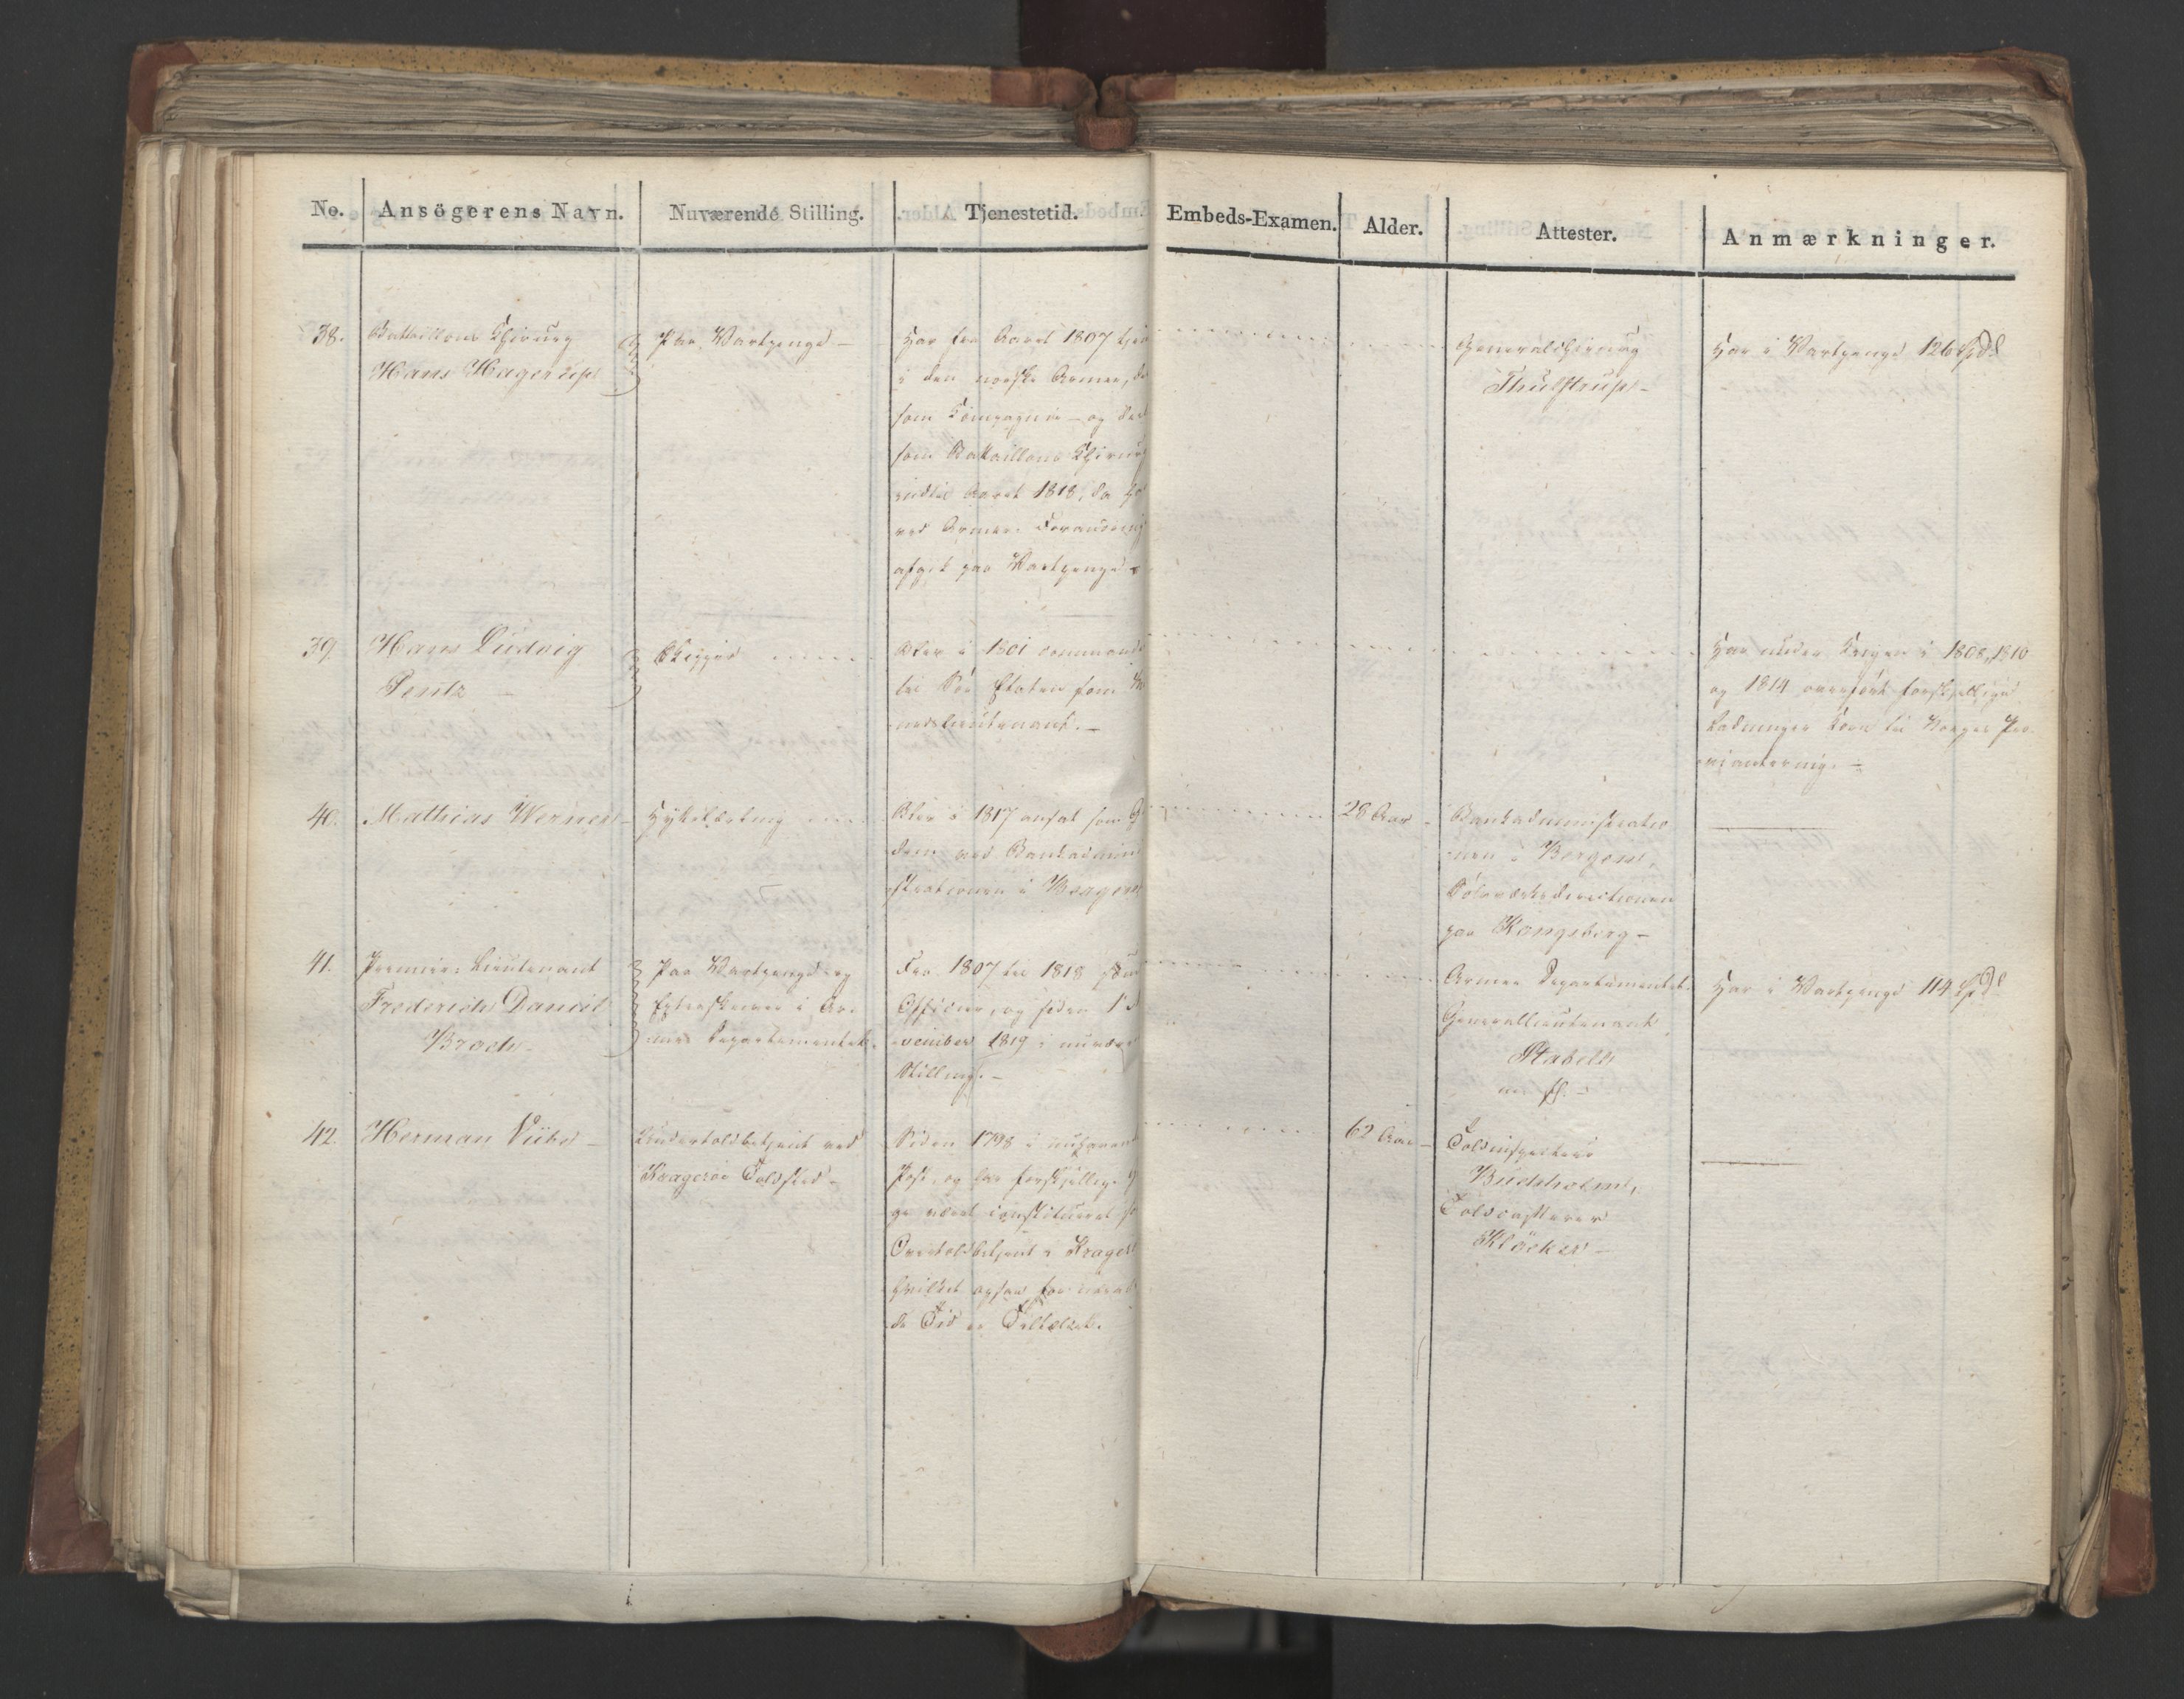 No. Ansögerens Navn. Nuværende Stilling. Tjenestetid. Embeds-Examen. Alder. Attester. Anmærkninger.
38. Bataillons Chirurg
Hans Hagerup
Paa Vartpenge –
Har fra Aaret 1807
i den norske Armee,
som Compagnie – og
som Bataillons Chirurg
indtil Aaret 1818, da
ved Armee Forandring
afgik paa Vartpenge –
Generalchirurg
Thulstrup –
Har i Vartpenge 126 Spd
39. Hans Ludvig
Pentz –
Skipper
Blev i 1801
til Söe Etaten som
nedslieutenant. –
Har under Krigen i 1808, 1810
og 1814 overfört forskjellige
Ladninger Korn til Norges Pro-
viantering. –
40. Mathias Werner –
Blev i 1817 ansat som
ved Bankadmini
strationen i Bergen
28 Aar –
Bankadministratio
nen i Bergen,
Sölvværksdirectionen
paa Kongsberg –
41. Premier-Lieutenant
Frederich Daniel
Broch –
Paa Vartpenge og
Extraskriver i Ar-
mee Departementet.
Fra 1807 til 1818
Officier, og siden 1
vember 1819 i nuvær
Stilling. –
Armee Departementet
Generallieutenant
Stabell
m. fl. –
Har i Vartpenge 114 Spd
42. Herman Vibe –
Undertoldbetjent ved
Kragerøe Toldsted –
Siden 1798 i nuhavende
Post, og har forskjellige
ge været constitueret
Overtoldbetjent i Krager
hvilket ogsaa for nærvæ
de Tid er Tilfældet.
62 Aar –
Toldinspecteur
Buchholm,
Toldcasserer
Klöcker –